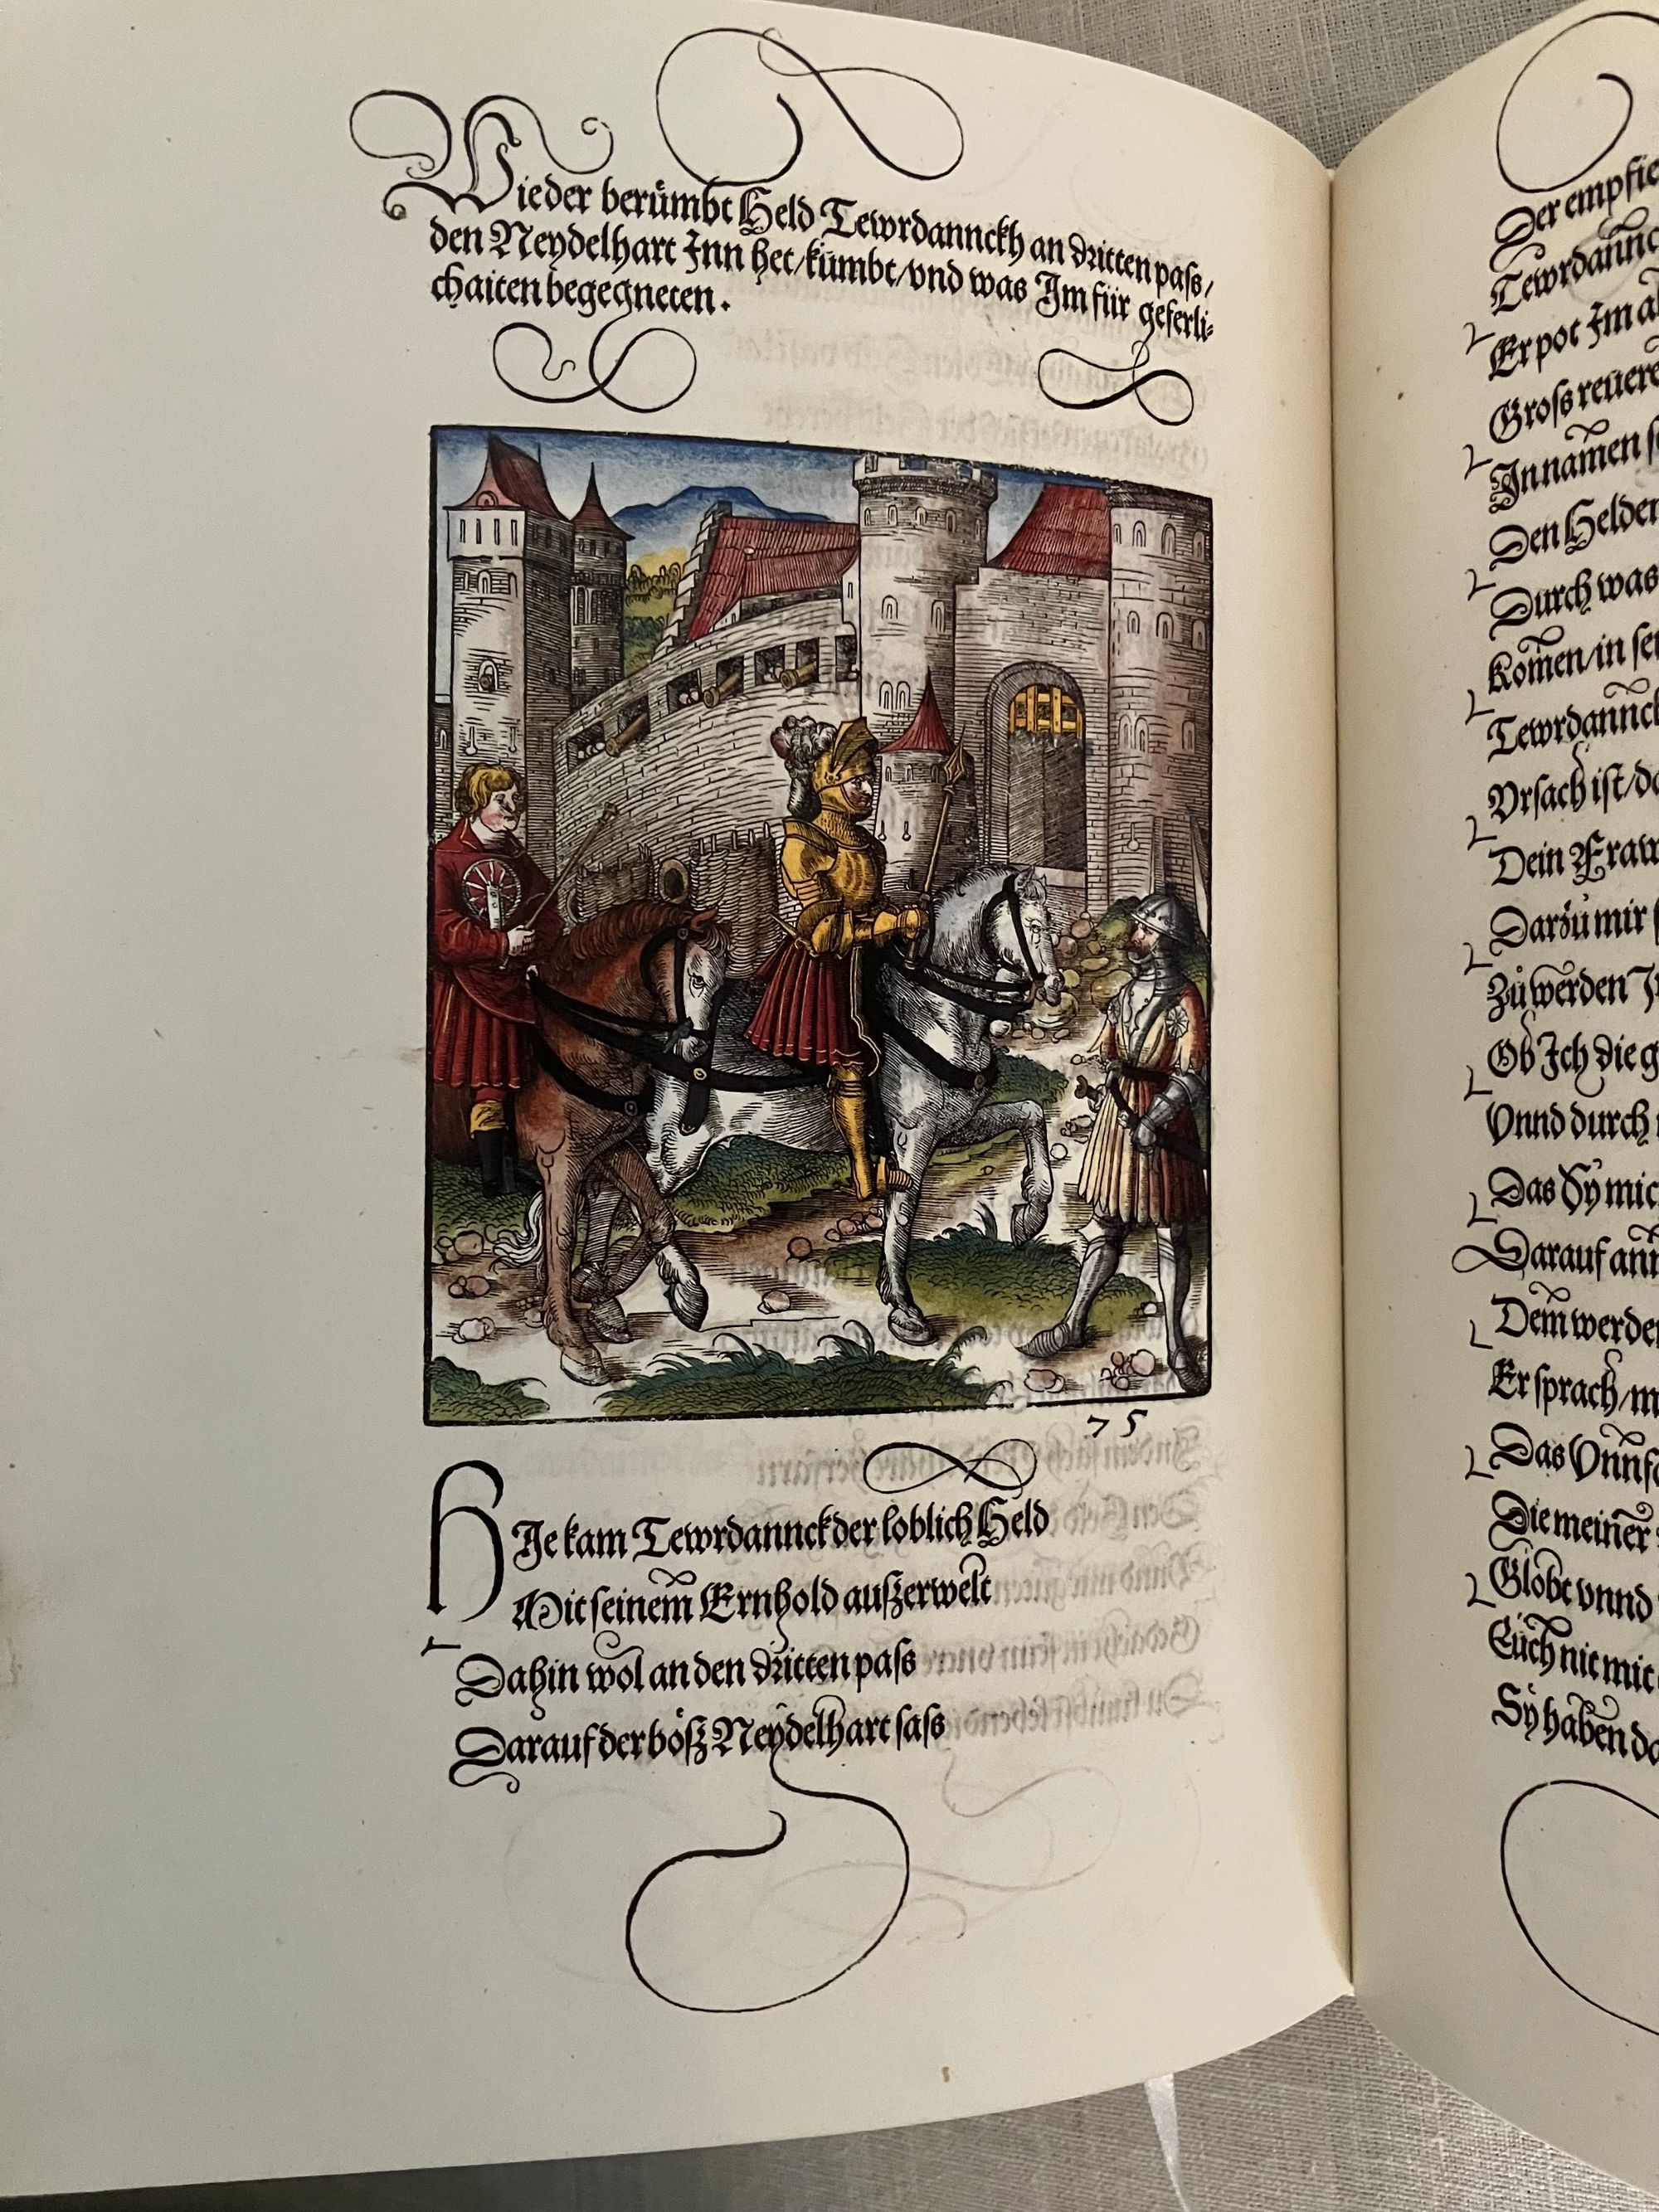 Wie der berümbt Held Tewrdannckh an dritten pass/
den Neydelhart Inn het/kümbt/vnd was Im für geferli-
chaiten begegneten.
75
HIe kam Tewrdannck der loblich Held
Mit seinem̄ Ernhold außerwelt
Dahin wol an den dritten pass
Darauf der böß Neydelhart sass
Der empfie
Tewrdannc
Er pot Im al
Gross reuere
In namen s
Den Helden
Durch was
Komen/in sei
Tewrdannck
Vrsach ist/da
Dein Fraw
Darzů mir s
Zůwerden J
Ob Ich die g
Vnnd durch
Das Sy mic
Darauf ann
Dem werden
Er sprach/m
Das Vnns
Die meiner
Globt vnnd
Eüch nit mit
Sy haben da